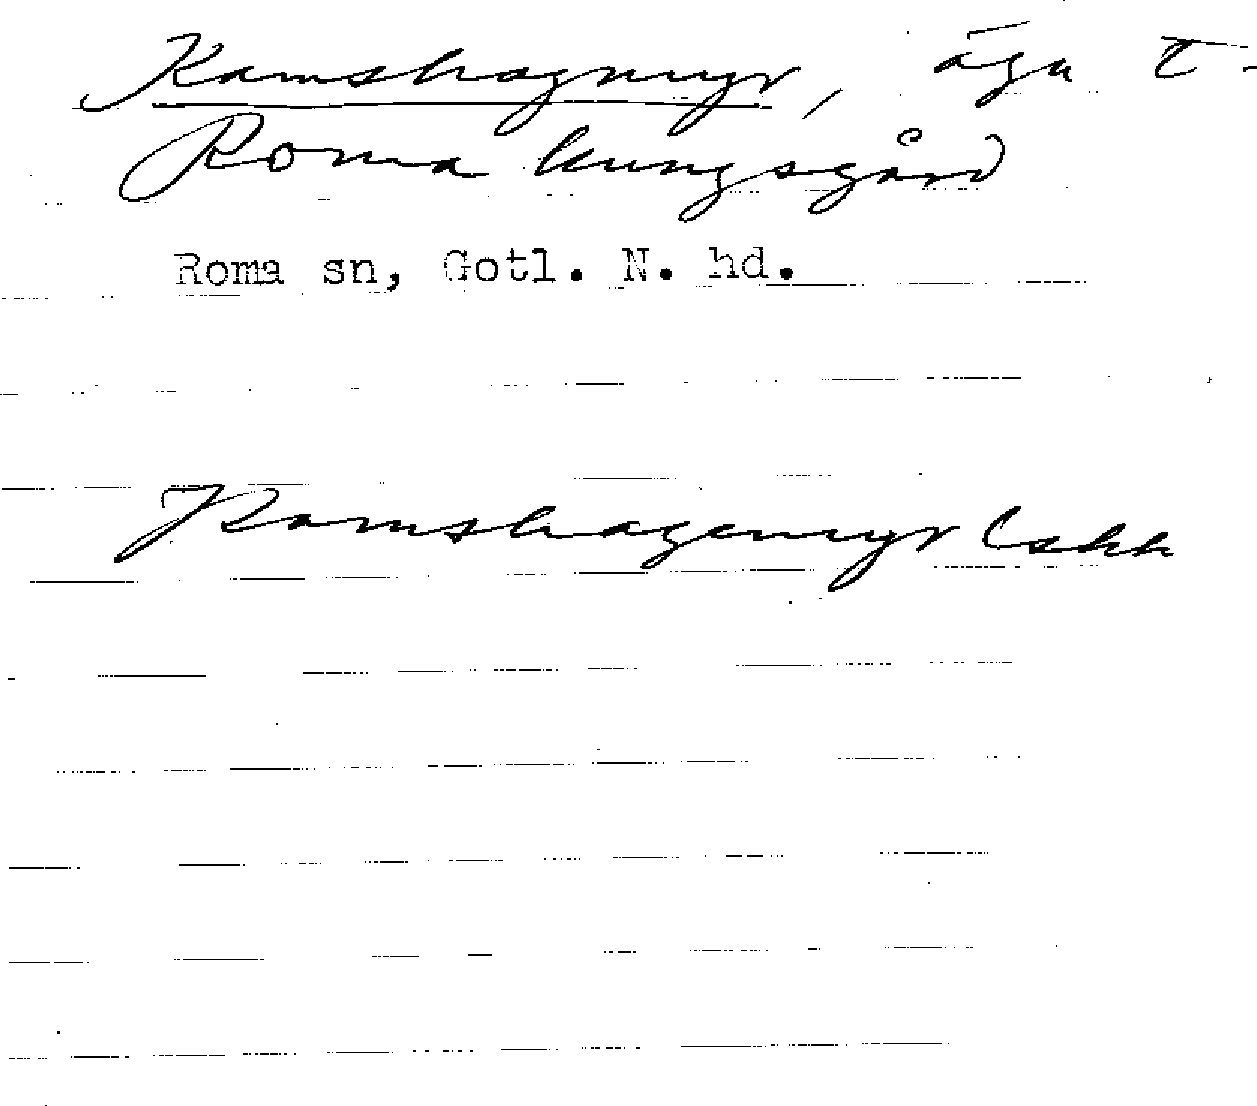 Kamshagmyr, äga t.
Roma kungsgård
Roma sn, Gotl. N. hd.
Ramshagemyr